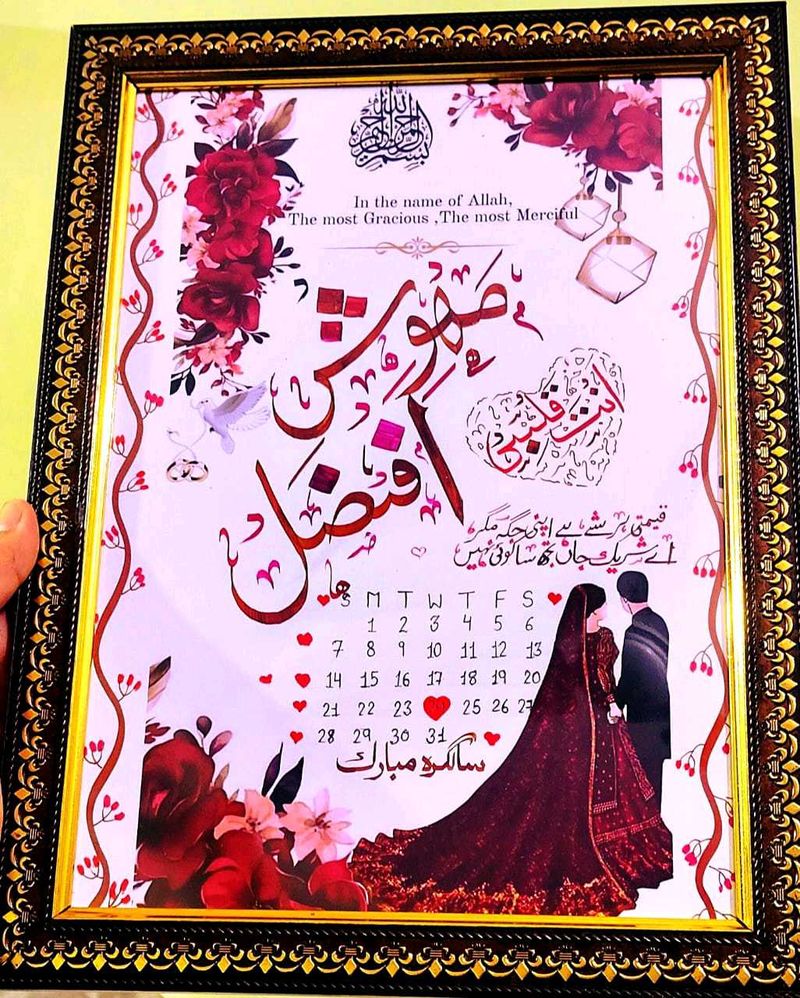 بسم الله الرحمن الرحيم
In the name of Allah,
The most Gracious ,The most Merciful
مہوش
افضل
انت قلبی
قیمتی ہر شے ہے اپنی جگہ مگر
اے شریک جاں تجھ سا کوئی نہیں
S M T W T F S
1 2 3 4 5 6
7 8 9 10 11 12 13
14 15 16 17 18 19 20
21 22 23 25 26 27
28 29 30 31
سالگرہ مبارک